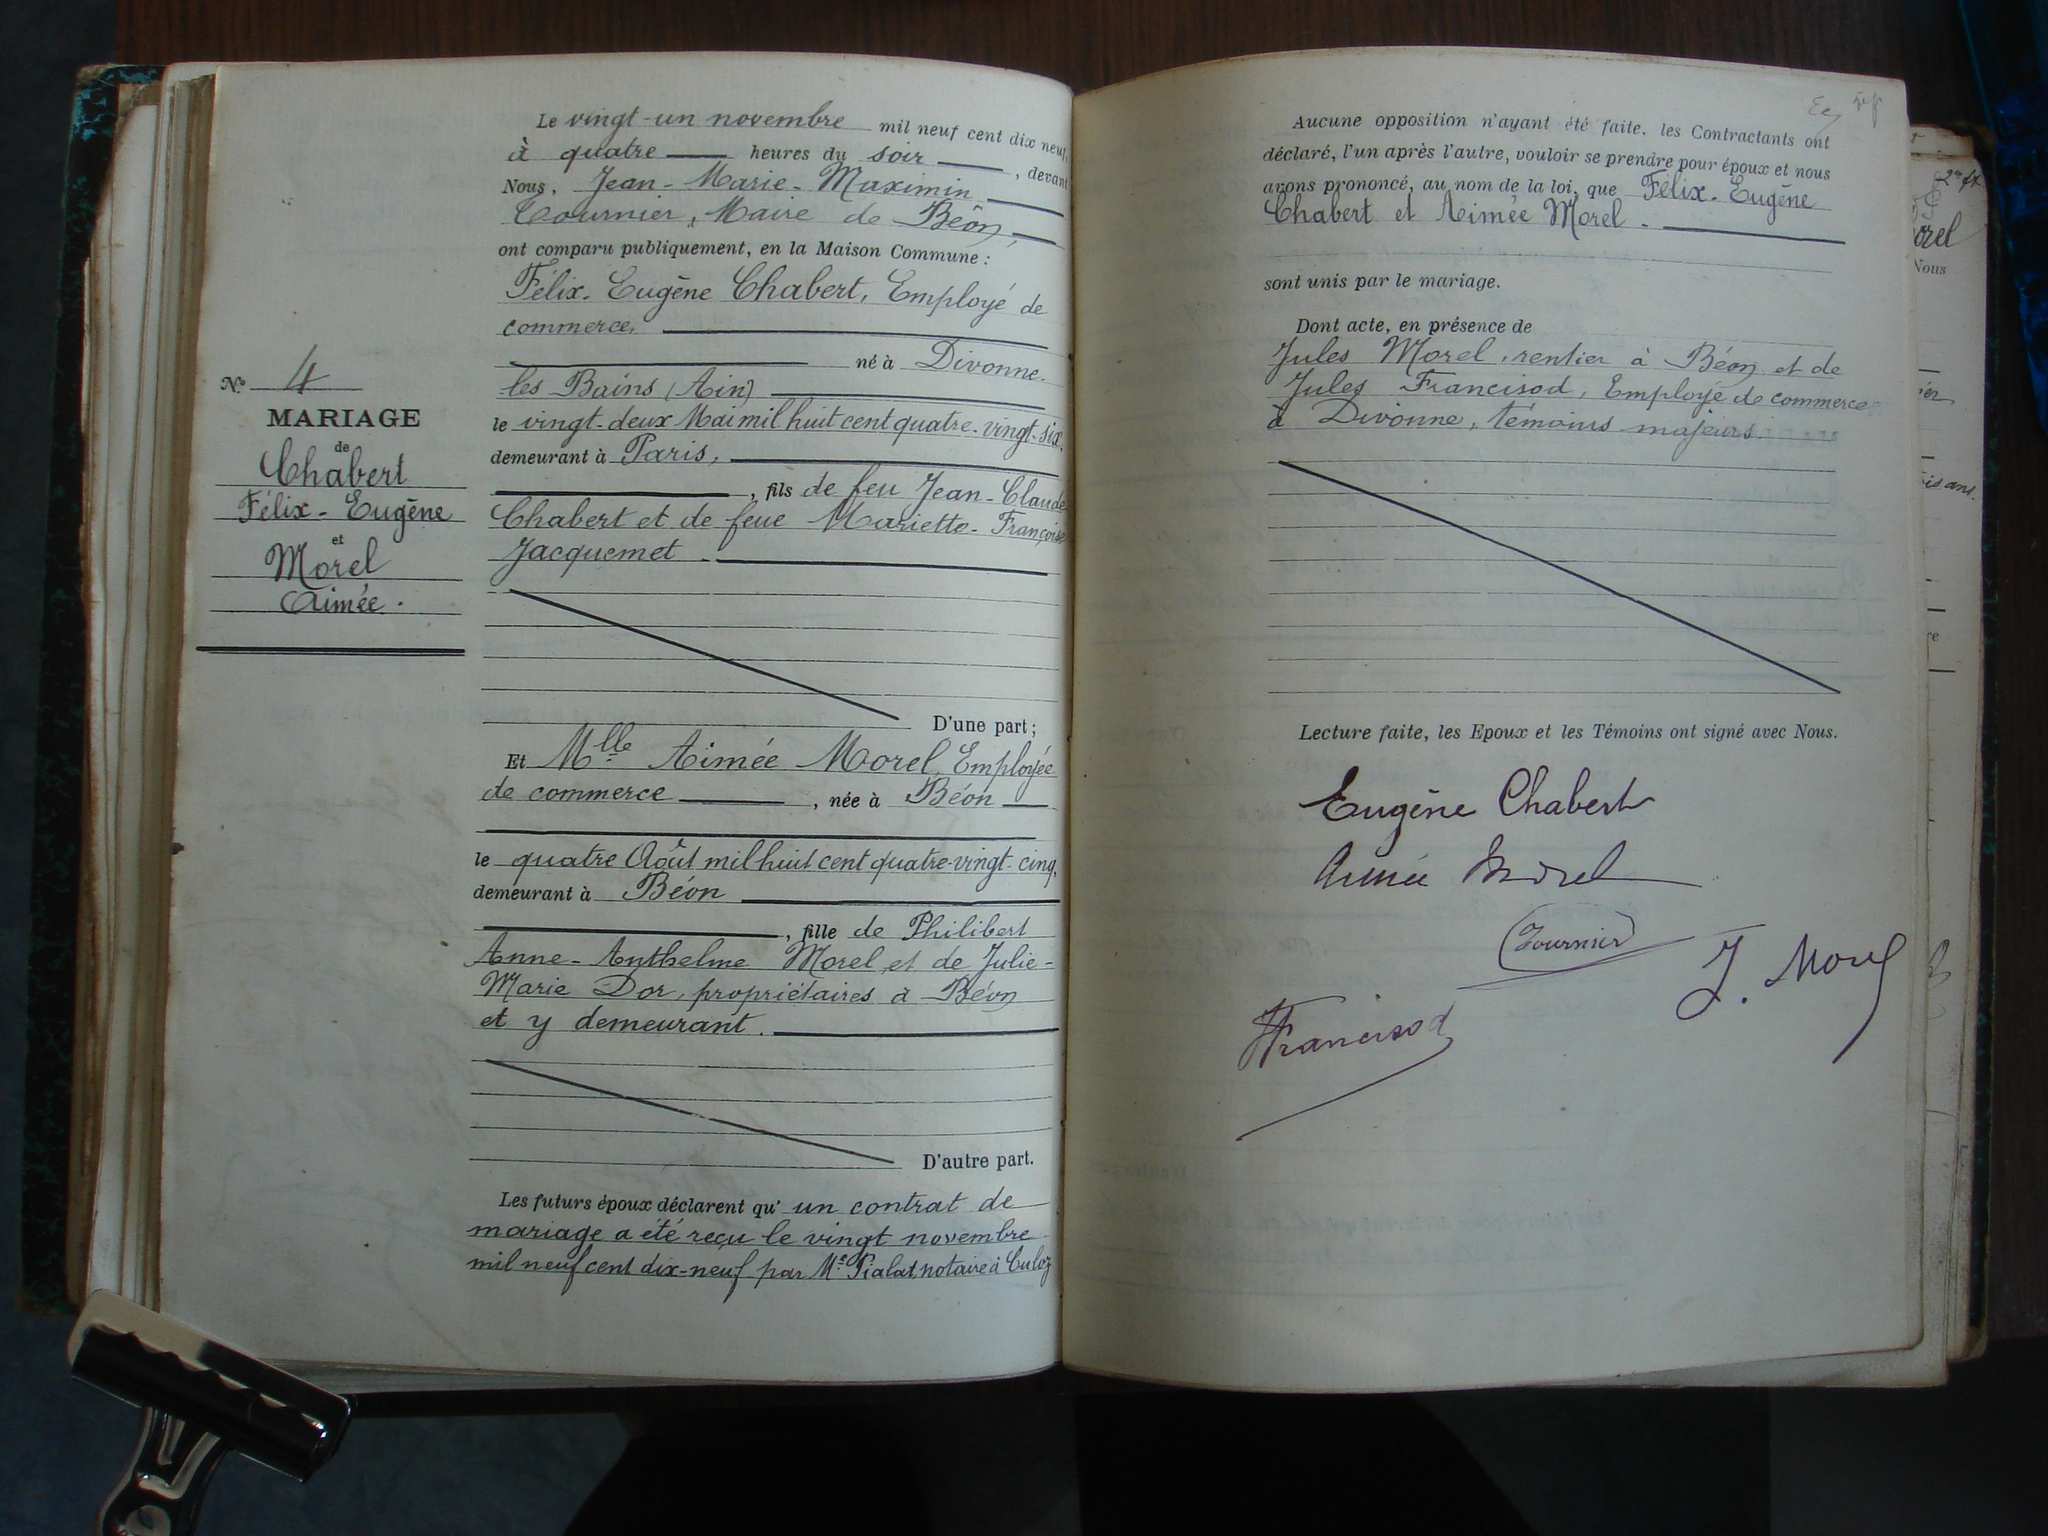 N.º 4
MARIAGE
de
Chabert
Félix-Eugène
et
Morel
Aimée.
Le vingt-un novembre mil neuf cent dix neuf,
à quatre heures du soir, devant
Nous, Jean-Marie-Maximin
Tournier, Maire de Béon,
ont comparu publiquement, en la Maison Commune :
Félix-Eugène Chabert, Employé de
commerce,
né à Divonne-
les Bains (Ain)
le vingt-deux Mai mil huit cent quatre-vingt-six,
demeurant à Paris,
, fils de feu Jean-Claude
Chabert et de feue Mariette-Françoise
Jacquemet.
D'une part ;
Et Mlle Aimée Morel, Employée
de commerce, née à Béon
le quatre Août mil huit cent quatre-vingt-cinq,
demeurant à Béon
, fille de Philibert
Anne-Anthelme Morel et de Julie-
Marie Dor, propriétaires à Béon
et y demeurant.
D'autre part.
Les futurs époux déclarent qu'un contrat de
mariage a été reçu le vingt novembre
mil neuf cent dix-neuf par Me Pialat notaire à Culoz
Aucune opposition n'ayant été faite, les Contractants ont
déclaré, l'un après l'autre, vouloir se prendre pour époux et nous
avons prononcé, au nom de la loi, que Félix-Eugène
Chabert et Aimée Morel.
sont unis par le mariage.
Dont acte, en présence de
Jules Morel, rentier à Béon et de
Jules Francisod, Employé de commerce
à Divonne, témoins majeurs.
Lecture faite, les Epoux et les Témoins ont signé avec Nous.
Eugène Chabert
Aimée Morel
Tournier
J. Morel
JFrancisod
orel
Nous